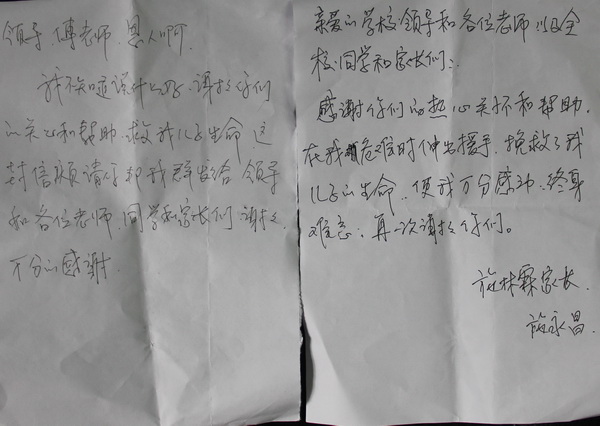 领导、傅老师、恩人啊
我不知道说什么好、谢谢你们
的关心和帮助、救我儿子生命、这
封信烦请你帮我群发给领导
和各位老师、同学和家长们、谢谢、
万分的感谢
亲爱的学校领导和各位老师以及全
校同学和家长们：
感谢你们的热心关怀和帮助、
在我危难时伸出援手、挽救了我
儿子的生命、使我万分感动、终身
难忘、再一次谢谢你们。
施林霖家长、
施永昌、